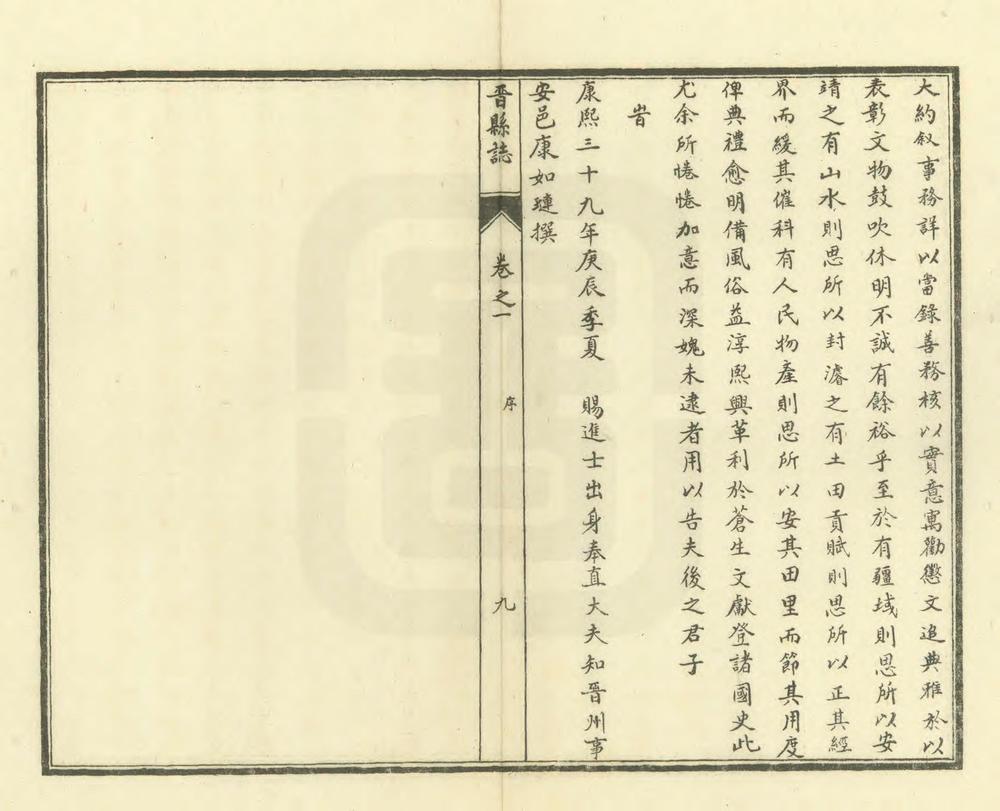 大約叙事務詳以當錄善務核以實意寓勸懲文追典雅於以
表彰文物鼓吹休明不誠有餘裕乎至於有疆域則思所以安
靖之有山水則思所以封濬之有土田貢賦則思所以正其經
界而緩其催科有人民物產則思所以安其田里而節其用度
俾典禮愈明備風俗益淳熙興革利於蒼生文獻登諸國史此
尤余所惓惓加意而深媿未逮者用以告夫後之君子
旹
康熙三十九年庚辰季夏 賜進士出身奉直大夫知晉州事
安邑康如璉撰
晉縣誌 卷之一 序 九